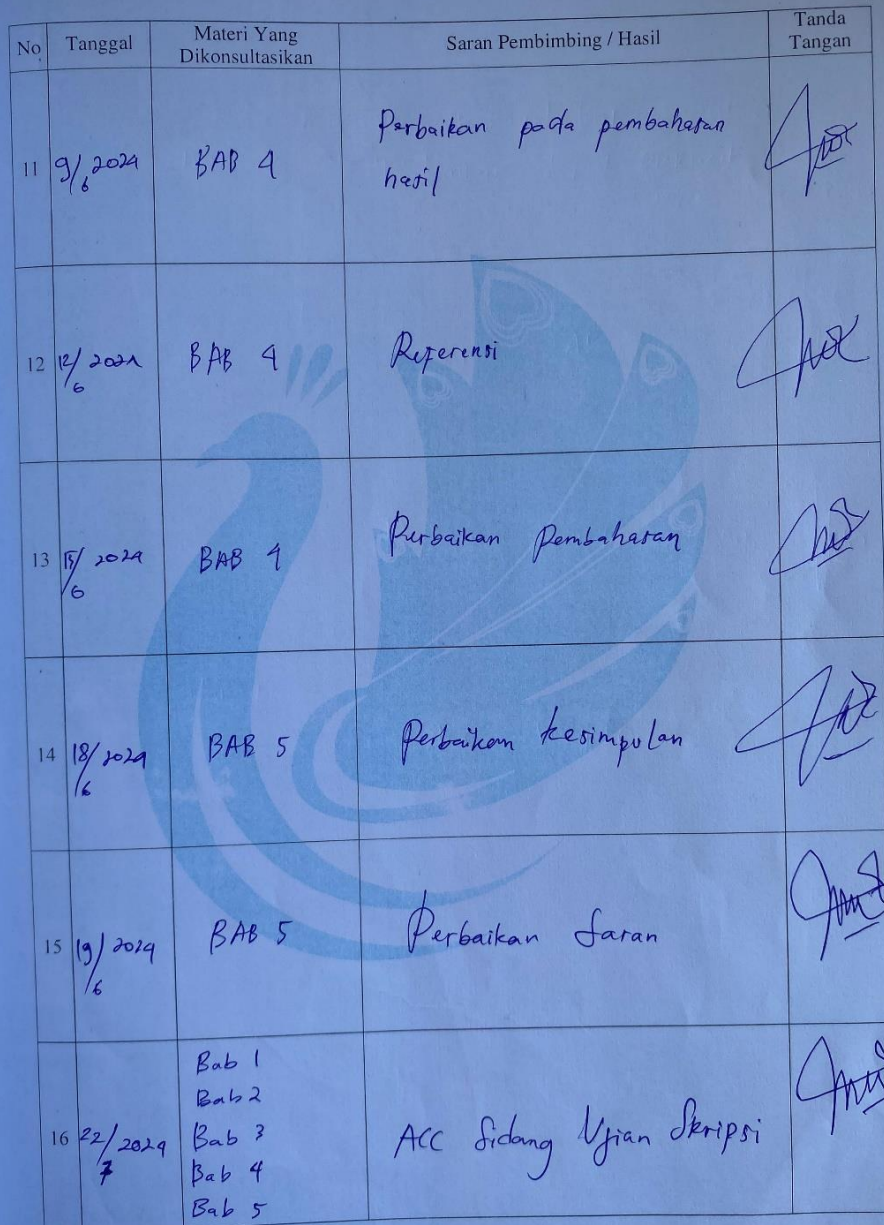 No Tanggal Materi Yang Dikonsultasikan Saran Pembimbing / Hasil Tanda Tangan
11 9/6 2024 BAB 4 Perbaikan pada pembahasan
hasil
12 12/6 2024 BAB 4 Referensi
13 15/6 2024 BAB 4 Perbaikan Pembahasan
14 18/6 2024 BAB 5 Perbaikan kesimpulan
15 19/6 2024 BAB 5 Perbaikan Saran
16 22/7 2024 Bab 1
Bab 2
Bab 3
Bab 4
Bab 5
ACC Sidang Ujian Skripsi